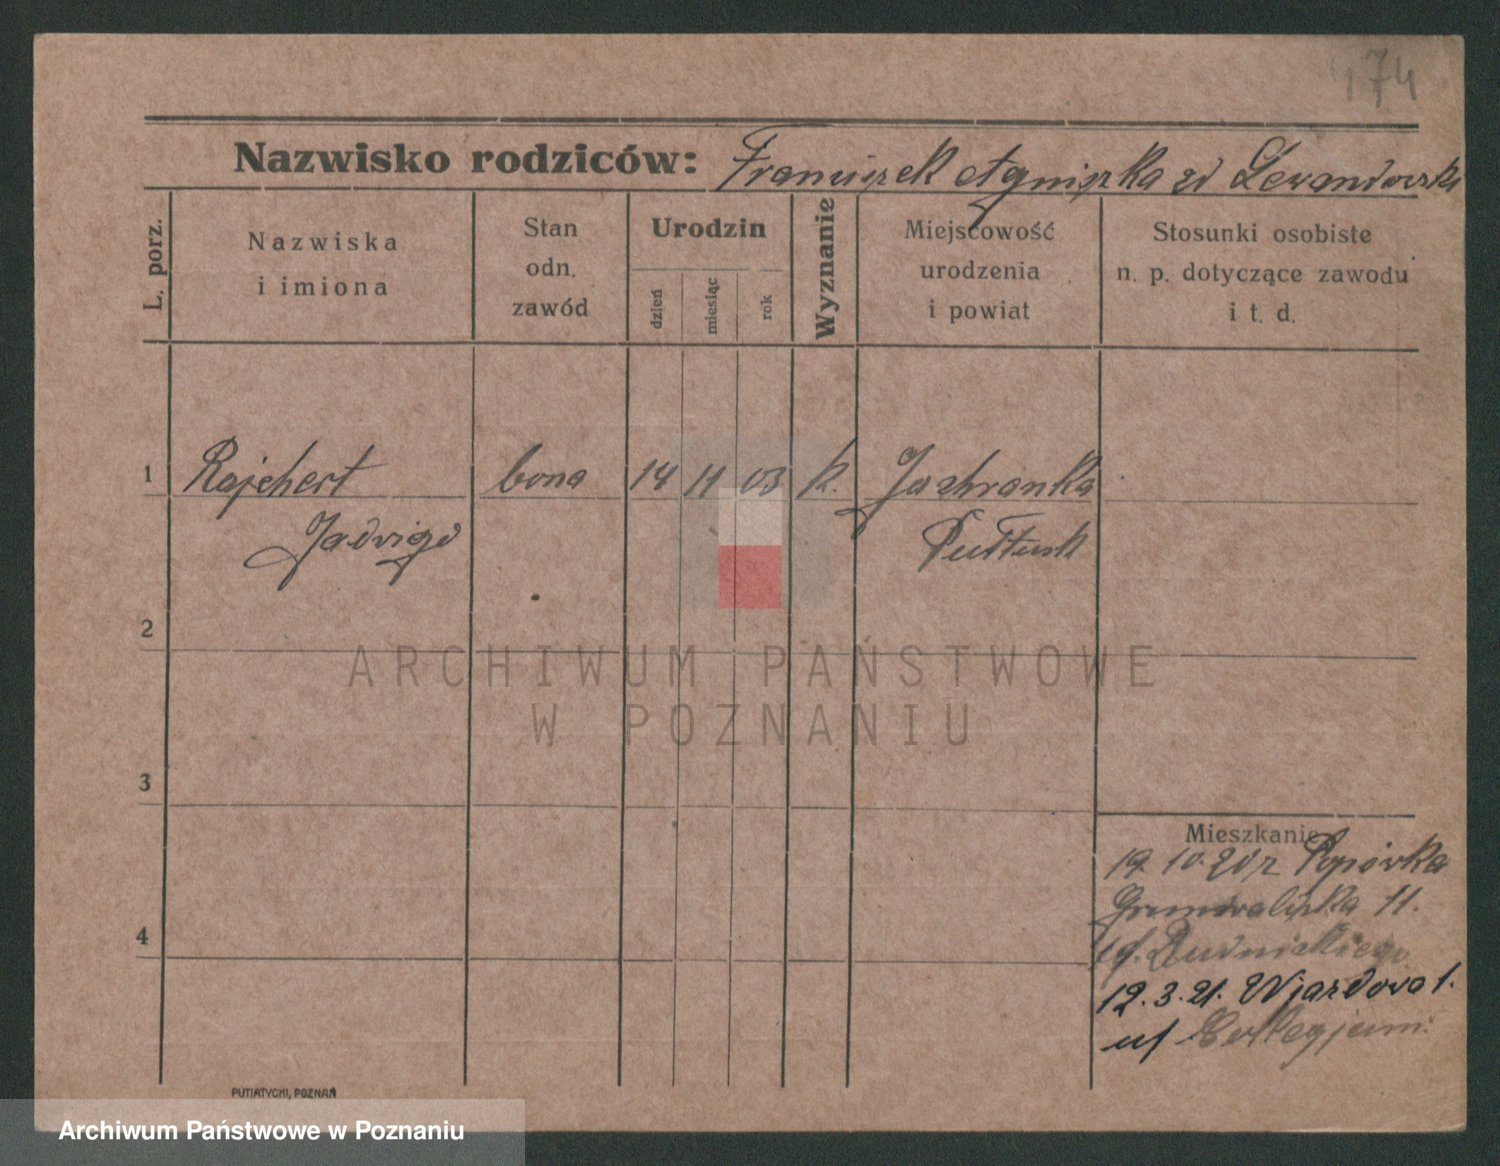 474
Nazwisko rodziców: Franciszek Agnieszka zd Lewandowska
L. porz.
Nazwiska
i imiona
Stan
odn.
zawód
Urodzin
dzień
miesiąc
rok
Wyznanie
Miejscowość
urodzenia
i powiat
Stosunki osobiste
n. p. dotyczące zawodu
i t. d.
1 Rajchert bona 14 11 03 k. Jachranka
Jadwiga Pułtusk
2
ARCHIWUM PAŃSTWOWE
W POZNANIU
3
Mieszkanie
19.10.20 r Popówka
Grunwaldzka 11.
4
uf. Rudnickiego
12.3.21. Wjazdowa 1.
uf Collegjum.
PUTIATYCKI, POZNAŃ
Archiwum Państwowe w Poznaniu